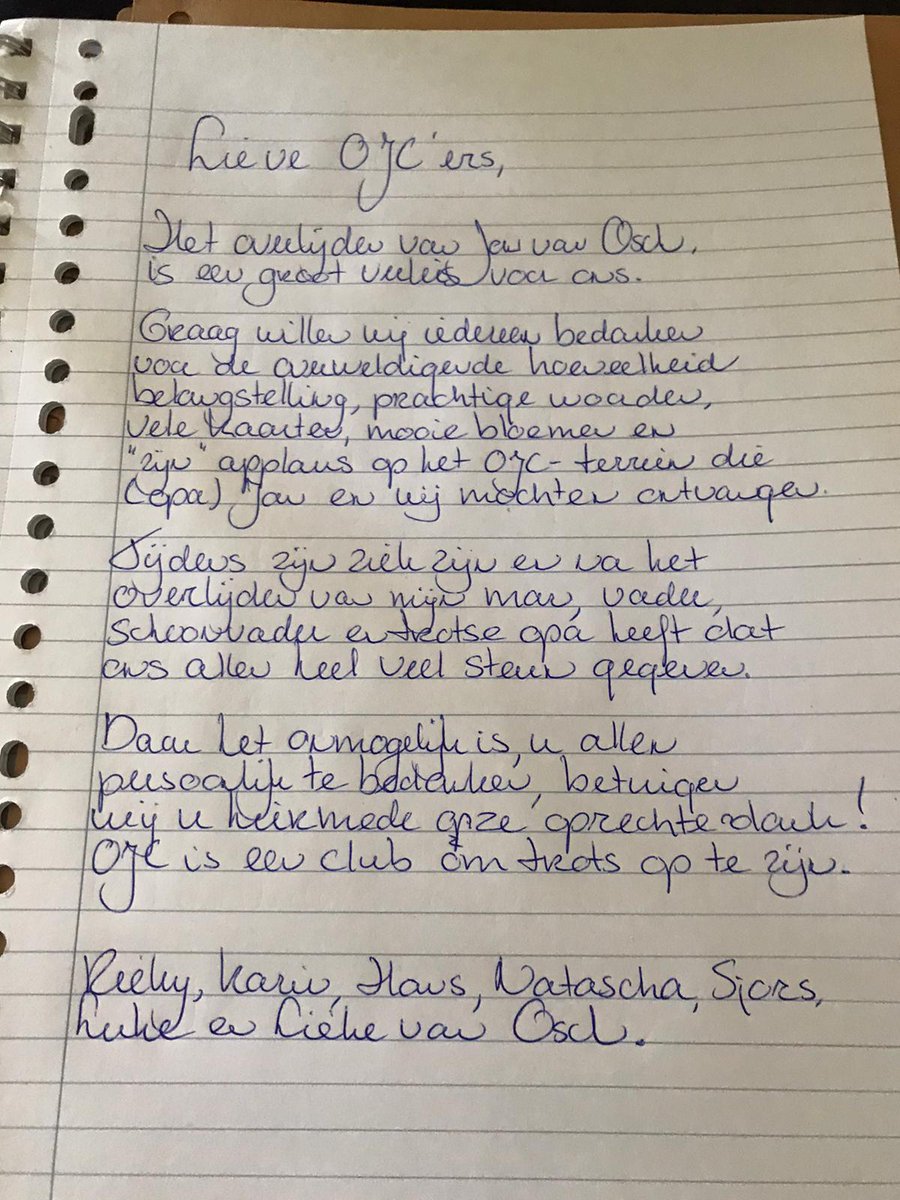 Lieve OJC'ers,
Het overlijden van Jan van Osch,
is een groot verlies voor ons.
Graag willen wij iedereen bedanken
voor de overweldigende hoeveelheid
belangstelling, prachtige woorden,
vele kaarten, mooie bloemen en
"zijn" applaus op het OJC-terrein die
(opa) Jan en wij mochten ontvangen.
Tijdens zijn ziek zijn en na het
overlijden van mijn man, vader,
schoonvader en trotse opa heeft dat
ons allen heel veel steun gegeven.
Daar het onmogelijk is, u allen
persoonlijk te bedanken, betuigen
wij u hiermede onze oprechte dank!
OJC is een club om trots op te zijn.
Karin, Hans, Natascha, Sjors,
en Lieke van Osch.